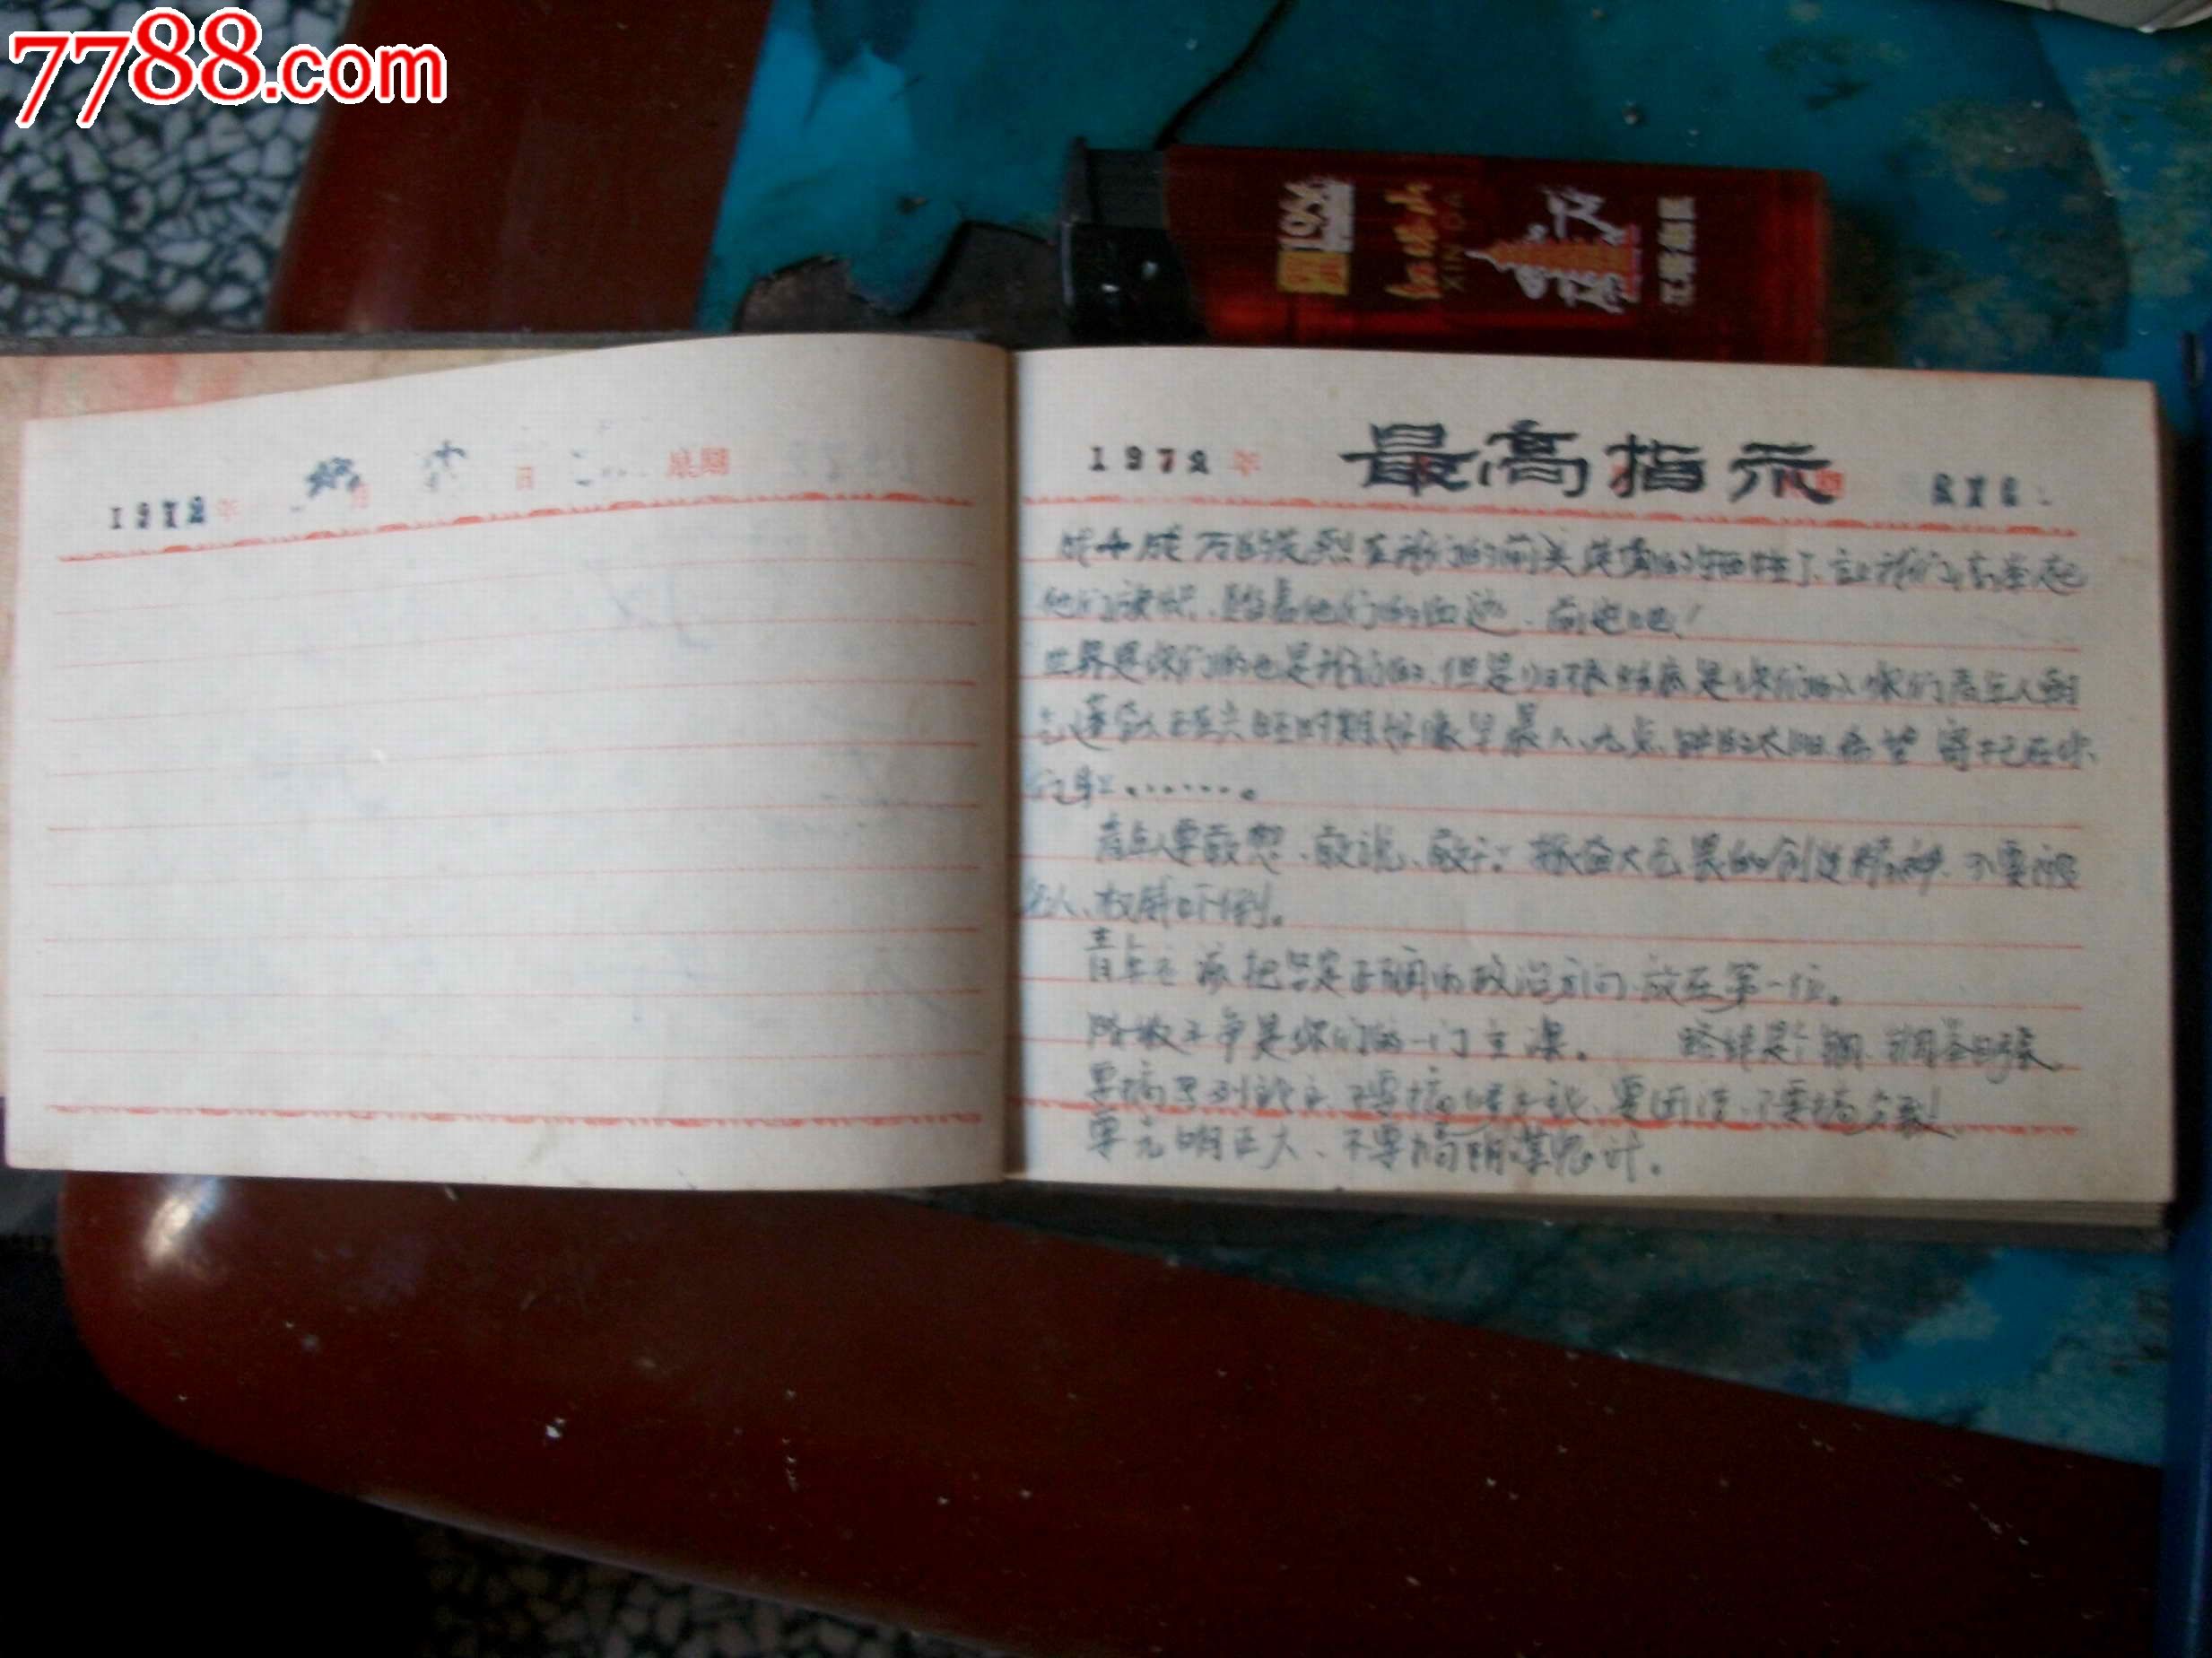 7788.com
1972年 月 日 星期
1972年 最高指示
成千成万的先烈在我们的前头英勇的牺牲了、让我们高举起
他们旗帜、踏着他们的血迹、前进吧！
世界是你们的也是我们的、但是归根结底是你们的、你们青年人朝
气蓬勃正在兴旺时期好像早晨八、九点钟的太阳、希望寄托在你
们身上........。
青年人要敢想、敢说、敢干。振奋大无畏的创造精神、不要被
名人、权威吓倒。
青年应该把坚定正确的政治方向、放在第一位。
阶级斗争是你们的一门主课。 路线是个纲、纲举目张。
要搞马列主义、不要搞修正主义、要团结、不要搞分裂！
要光明正大、不要搞阴谋诡计。